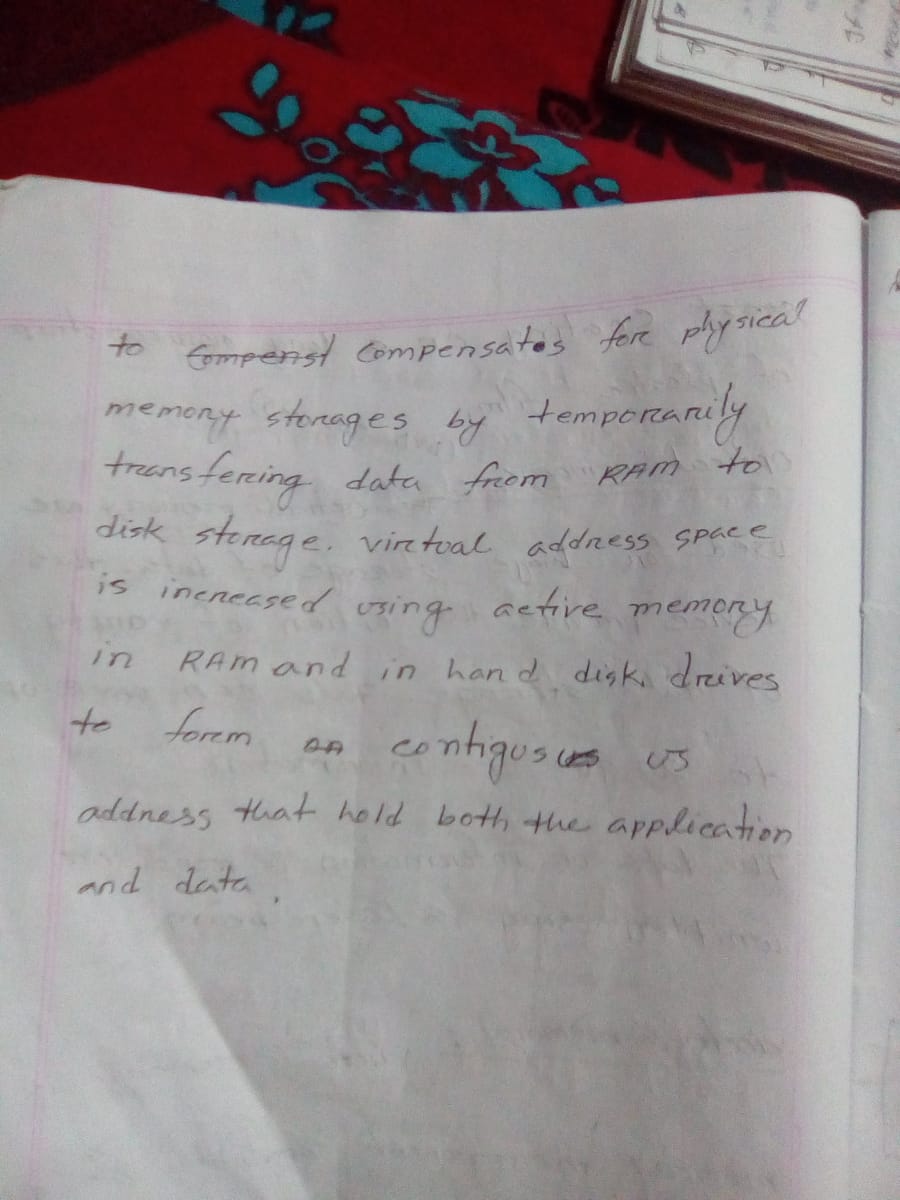 to compenst compensates for physical
memory storages by temporarily
transfering data from RAM to
disk storage. virtual address space
is increased using active memory
in RAM and in hard disk drives
to form contigusus us
address that hold both the application
and data.